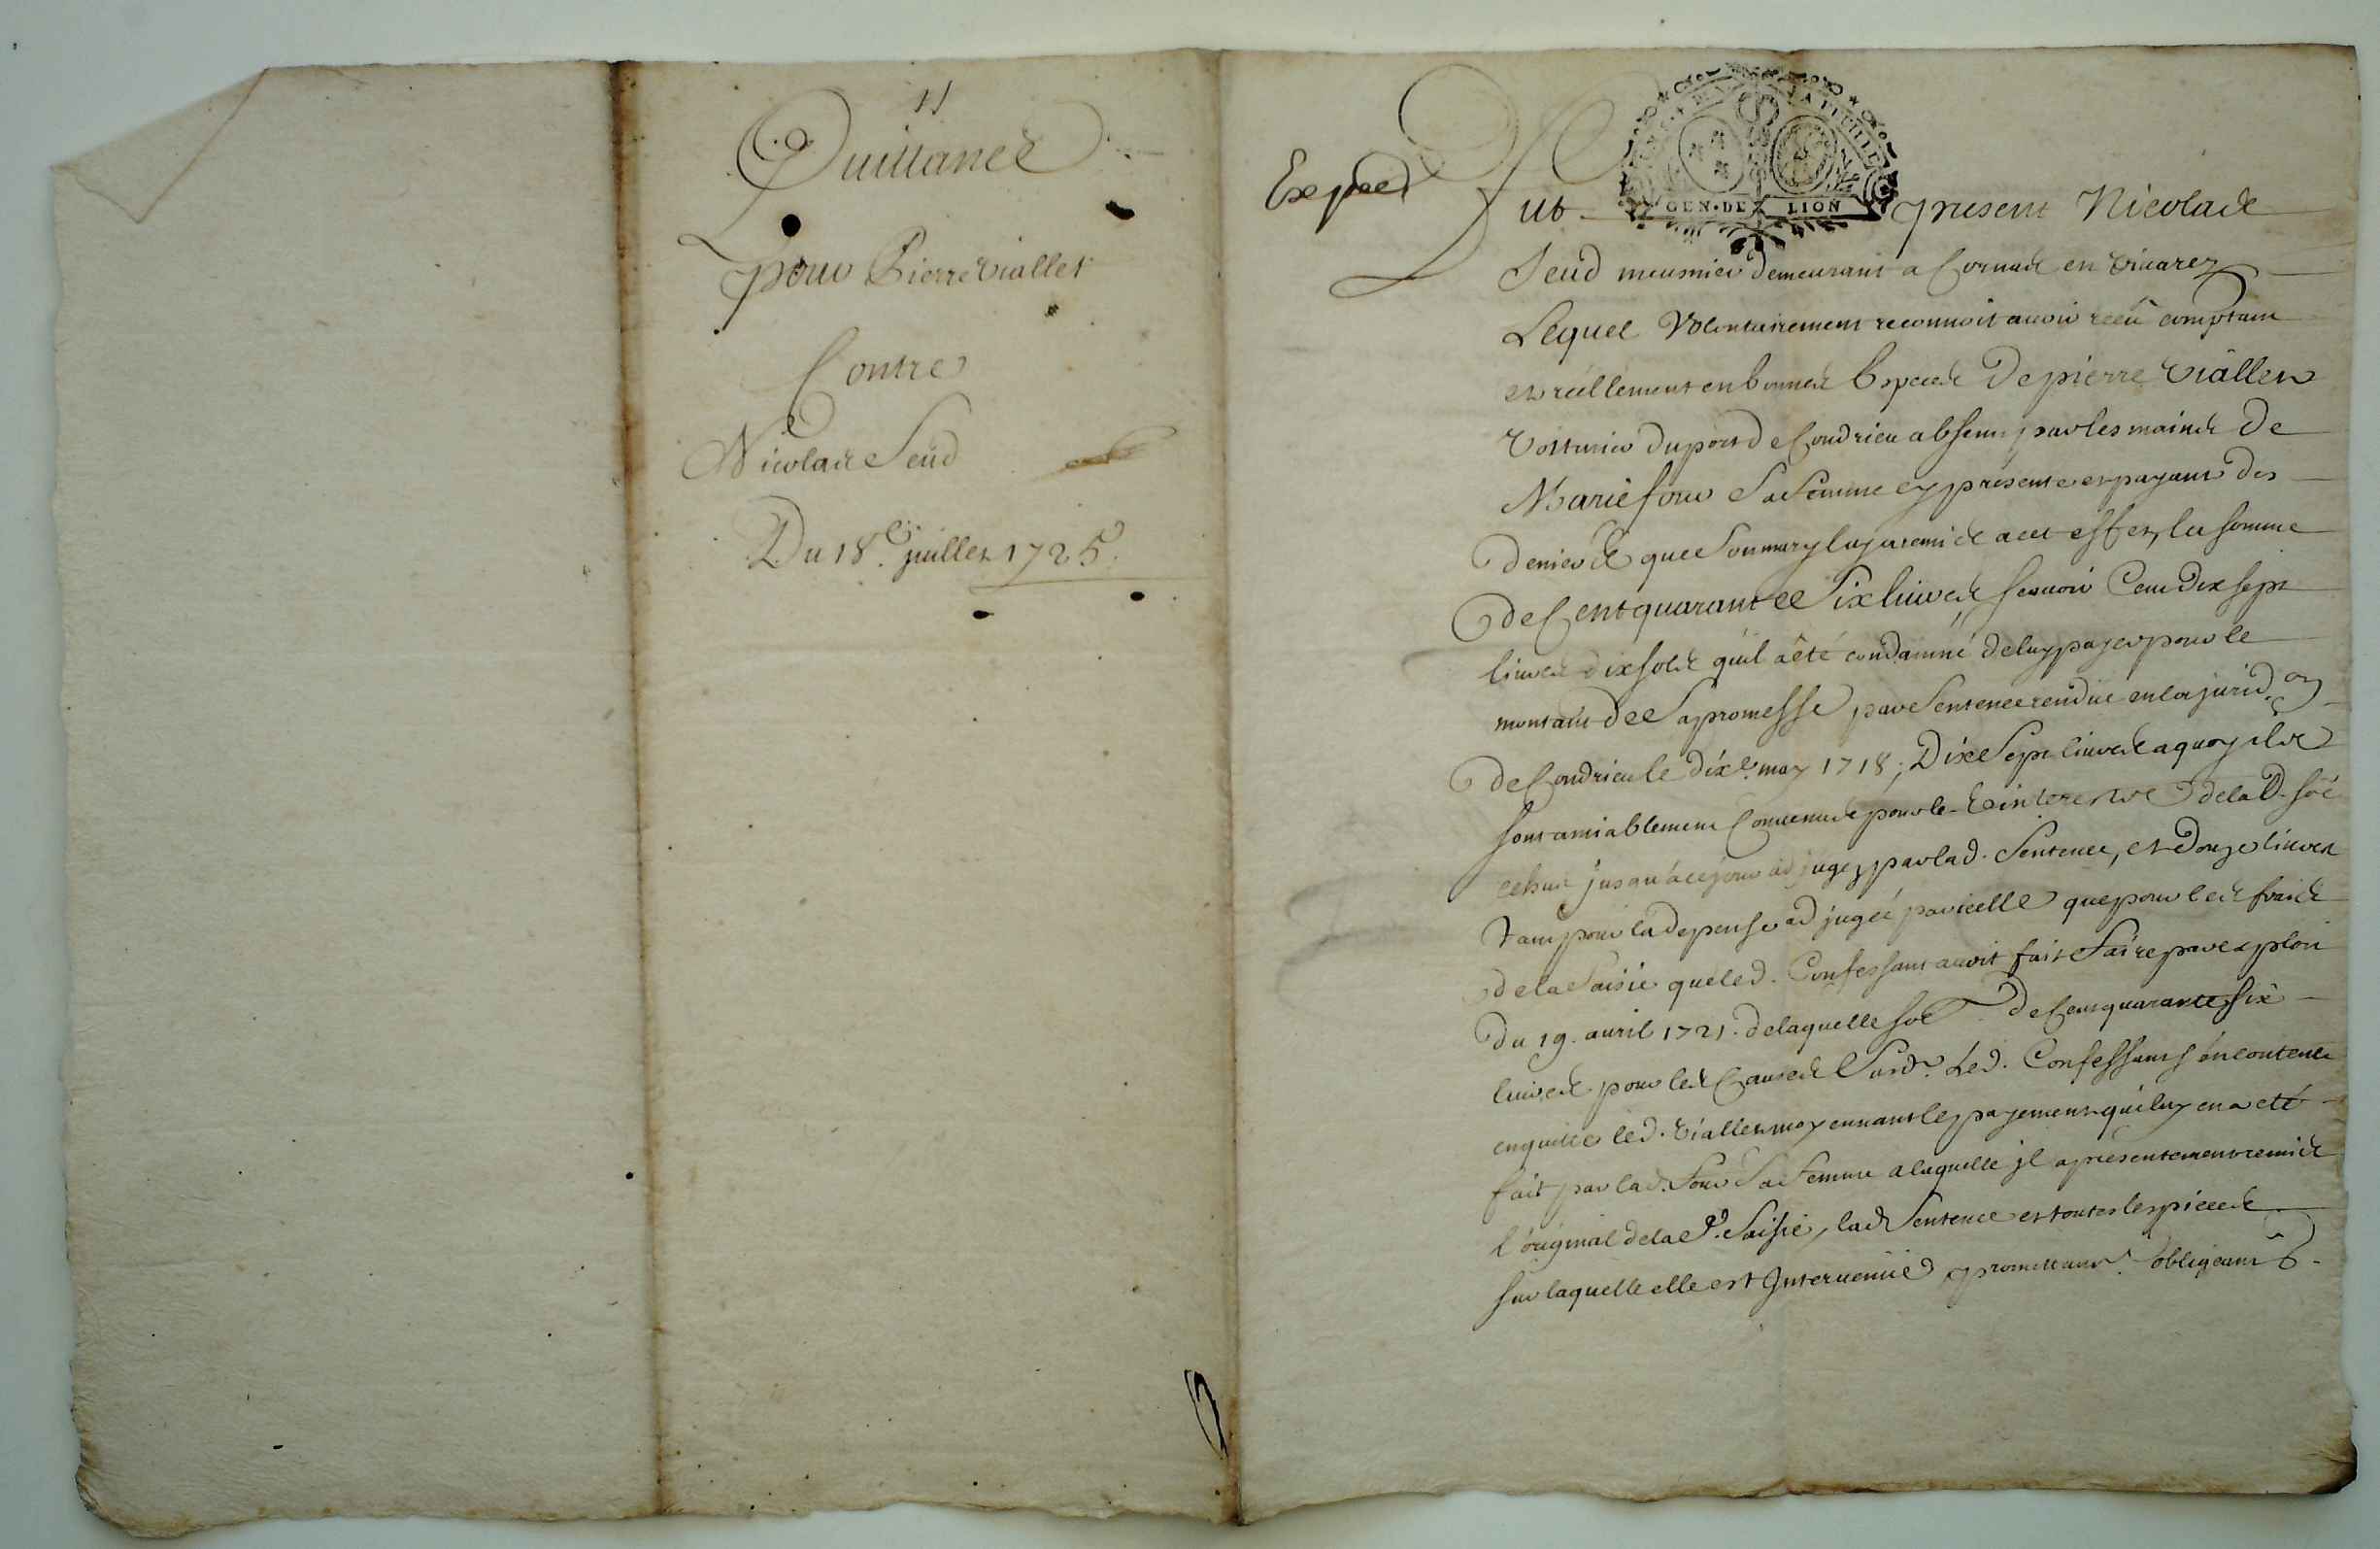 11
Quittance
pour Pierre Viallet
Contre
Nicolas Seüd
Du 18e. juillet 1725.
Exped
GEN. DE LION
Fut present Nicolas
Seud meusnier demeurant a Cornas en vivarez
Lequel Volontairement reconnoit avoir receu comptant
et réellement en bonnes Especes De pierre viallet
Voiturier du port de Condrieu absent par les mains De
Marie four Sa femme cy présente et payant des
Deniers que Son mary luy a remis a cet effet, la somme
De Cent quarante Six livres scavoir Cent Dix sept
livres dix sols qu'il a été condamné de luy payer pour le
montant de Sa promesse par Sentence rendue en la jurid.on
De Condrieu le dixe. may 1718; Dix Sept livres a quoy ils
sont amiablement Convenus pour les interests de lad. soe
echus jusqu'a ce jour adjugez par lad. Sentence, et Douze livres
tant pour la depense adjugée par icelle que pour les frais
de la Saisie que led. Confessant avoit fait Faire par exploit
Du 19. avril 1721. de laquelle soe De Cent quarante six
livres pour les Causes Susd. Led. Confessant s'en contente
en quitte led. Viallet moyennant le payement qui luy en a eté
fait par lad. Four Sa Femme a laquelle il a présentement remis
l'original de lad. Saisie, lad. Sentence et toutes les pieces
sur laquelle elle est Intervenüe promettant. obligeant &.